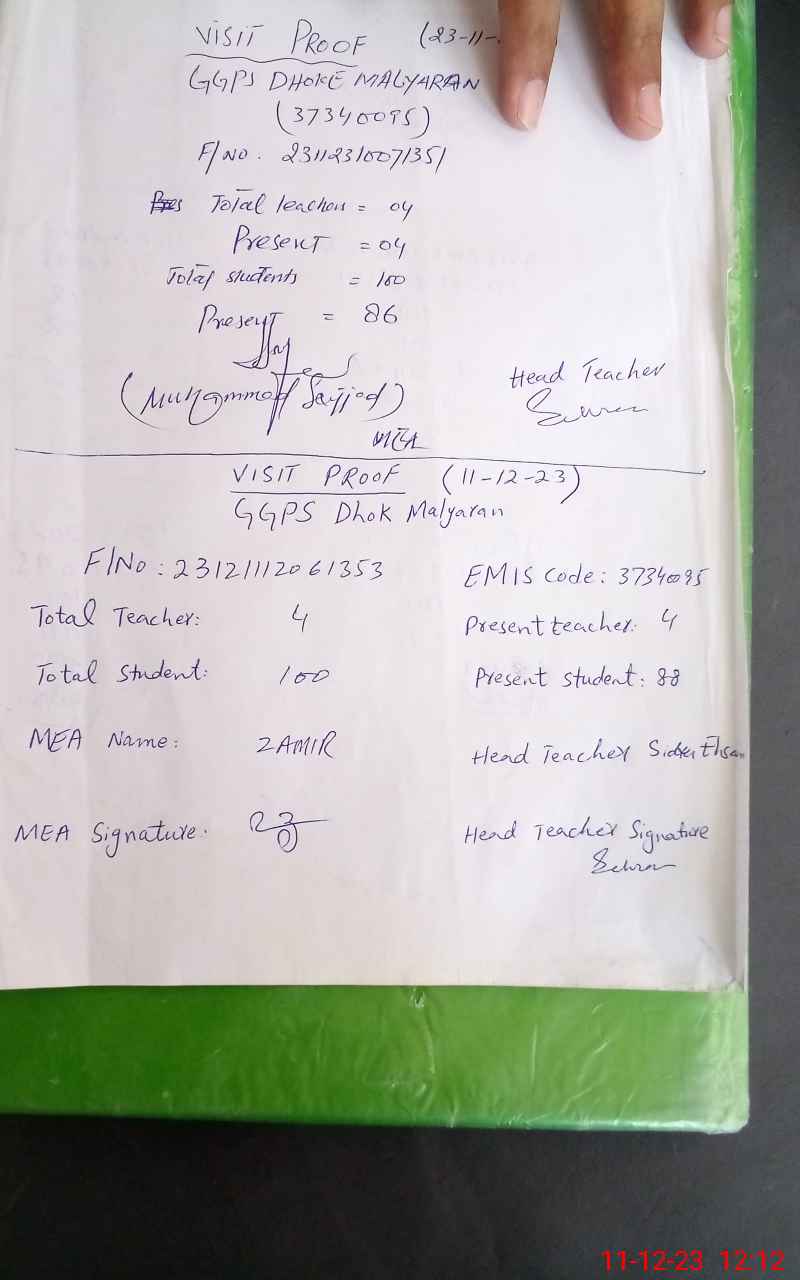 VISIT PROOF (23-11-
GGPS DHOKE MALYARAN
(37340095)
F/NO. 23112310071351
Total teachers = 04
Present = 04
Total students = 100
Present = 86
(Muhammad Sajjad)
MEA
Head Teacher
VISIT PROOF (11-12-23)
GGPS Dhok Malyaran
F/No: 23121112061353 EMIS Code: 37340095
Total Teacher: 4 Present teacher: 4
Total Student: 100 Present student: 88
MEA Name: ZAMIR Head Teacher Ehsan
MEA Signature: Head Teacher Signature
11-12-23 12:12